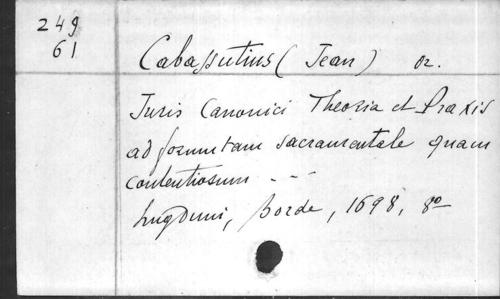 249
61
Cabassutius (Jean) or.
Juris Canonici Theoria et Praxis
ad forum tam sacramentale quam
contentiosum - - -
Lugduni, Borde, 1698, 8º